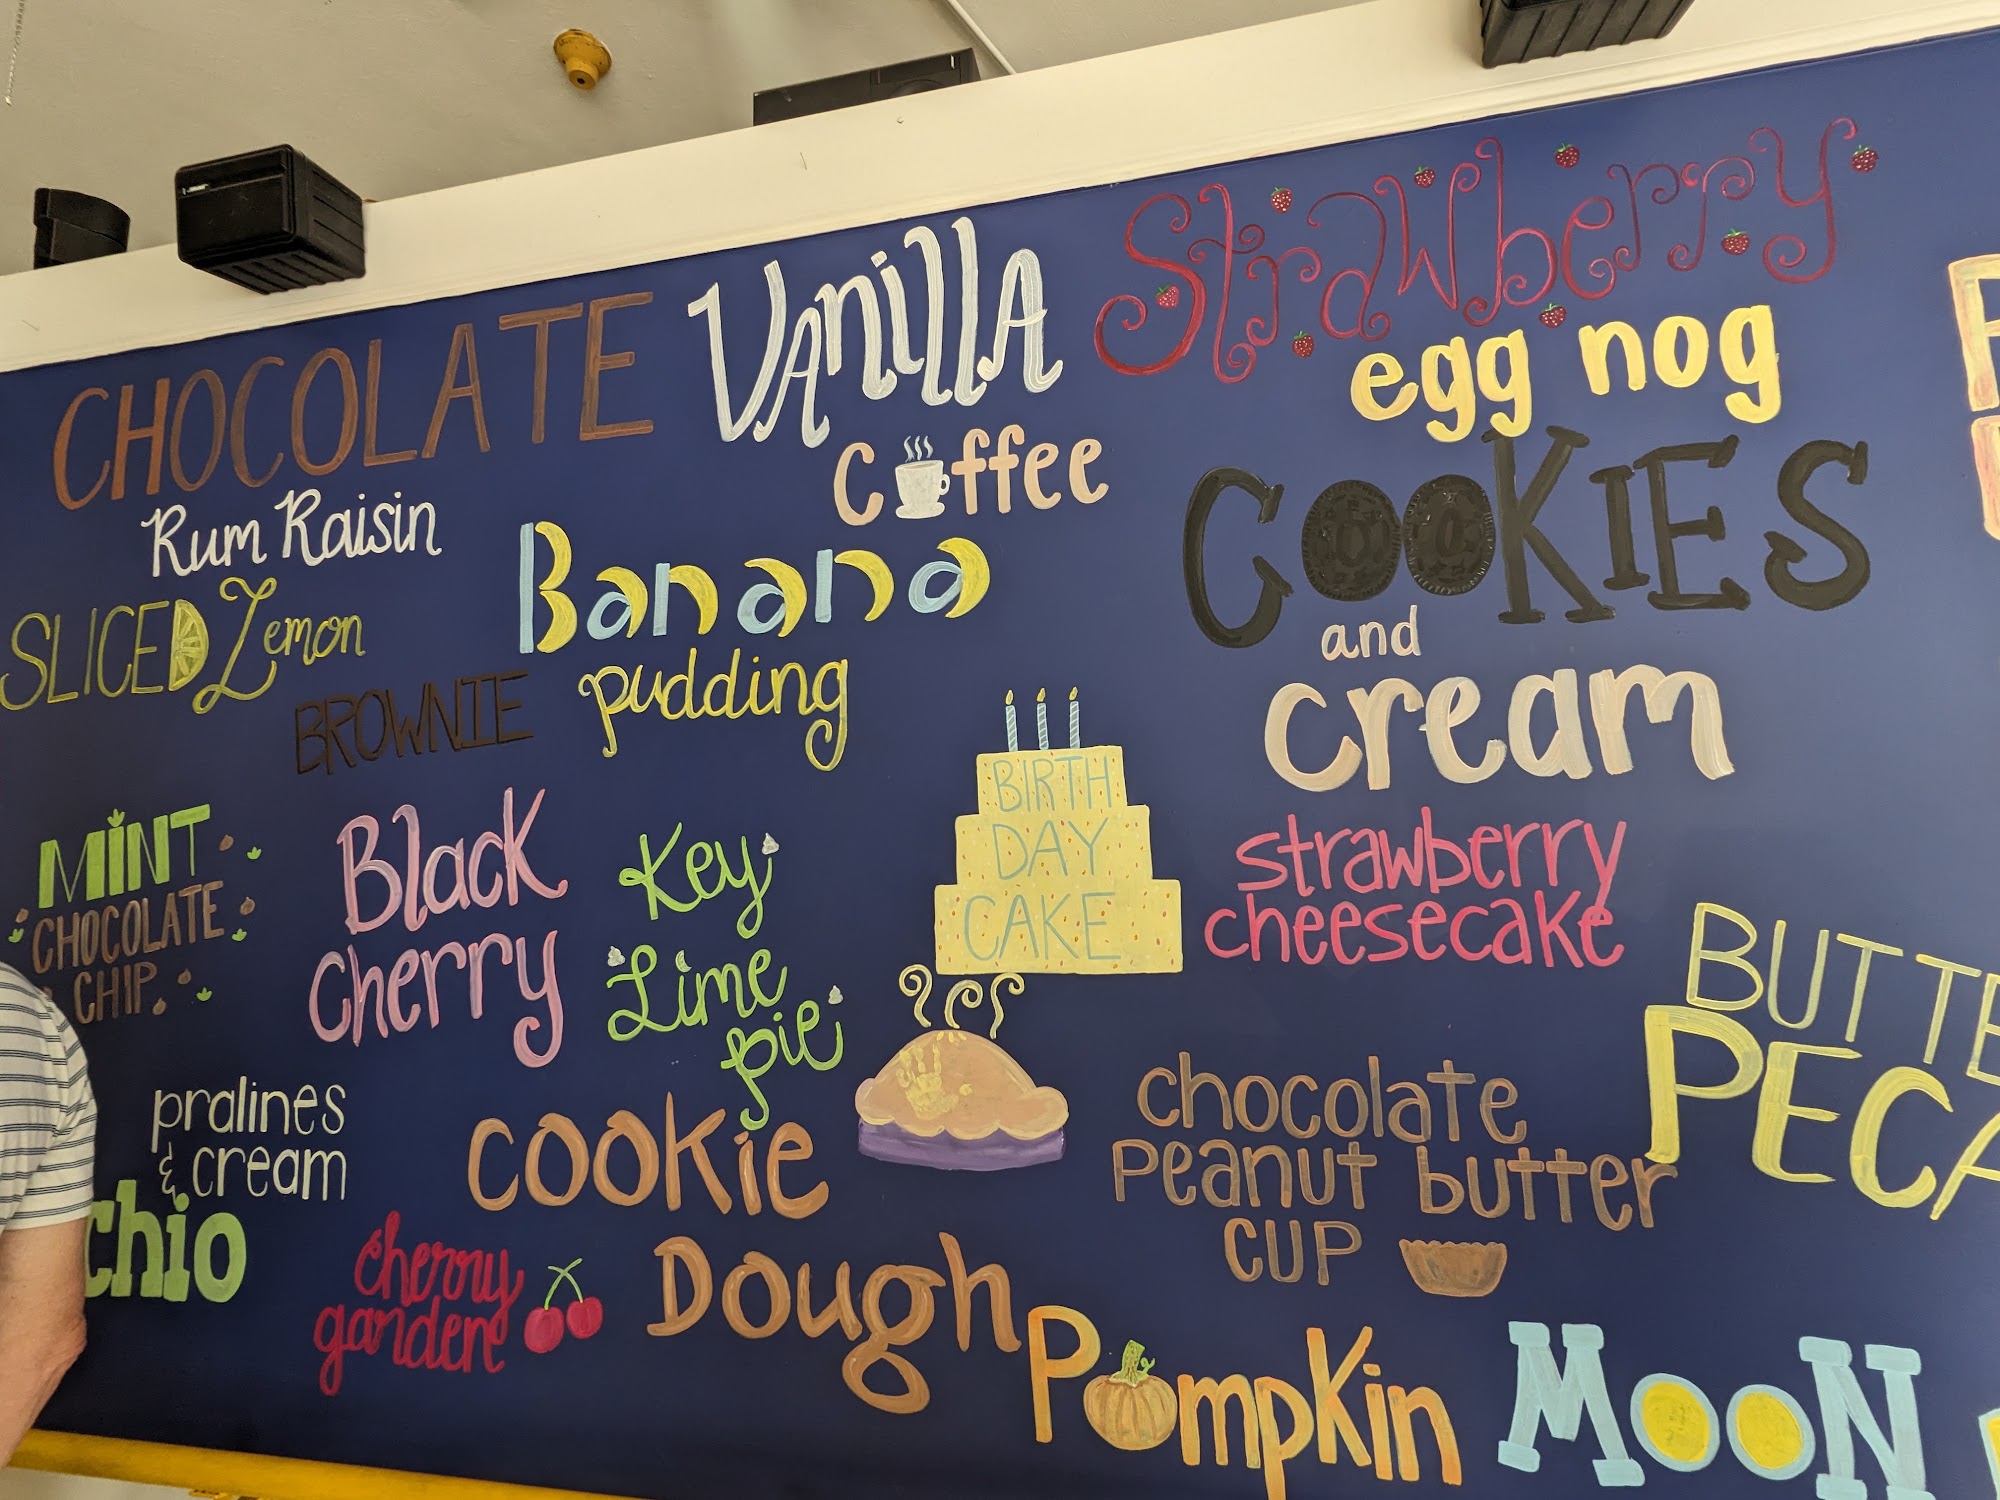 CHOCOLATE
Vanilla
Strawberry
egg nog
Coffee
Rum Raisin
Banana
pudding
COOKIES
and
cream
SLICED Lemon
BROWNIE
MINT
CHOCOLATE
CHIP
Black
Cherry
Key
Lime
pie
BIRTH
DAY
CAKE
strawberry
cheesecake
BUTTE
PECA
pralines
& cream
chio
cherry
garden
cookie
Dough
chocolate
peanut butter
cup
Pumpkin
MOON